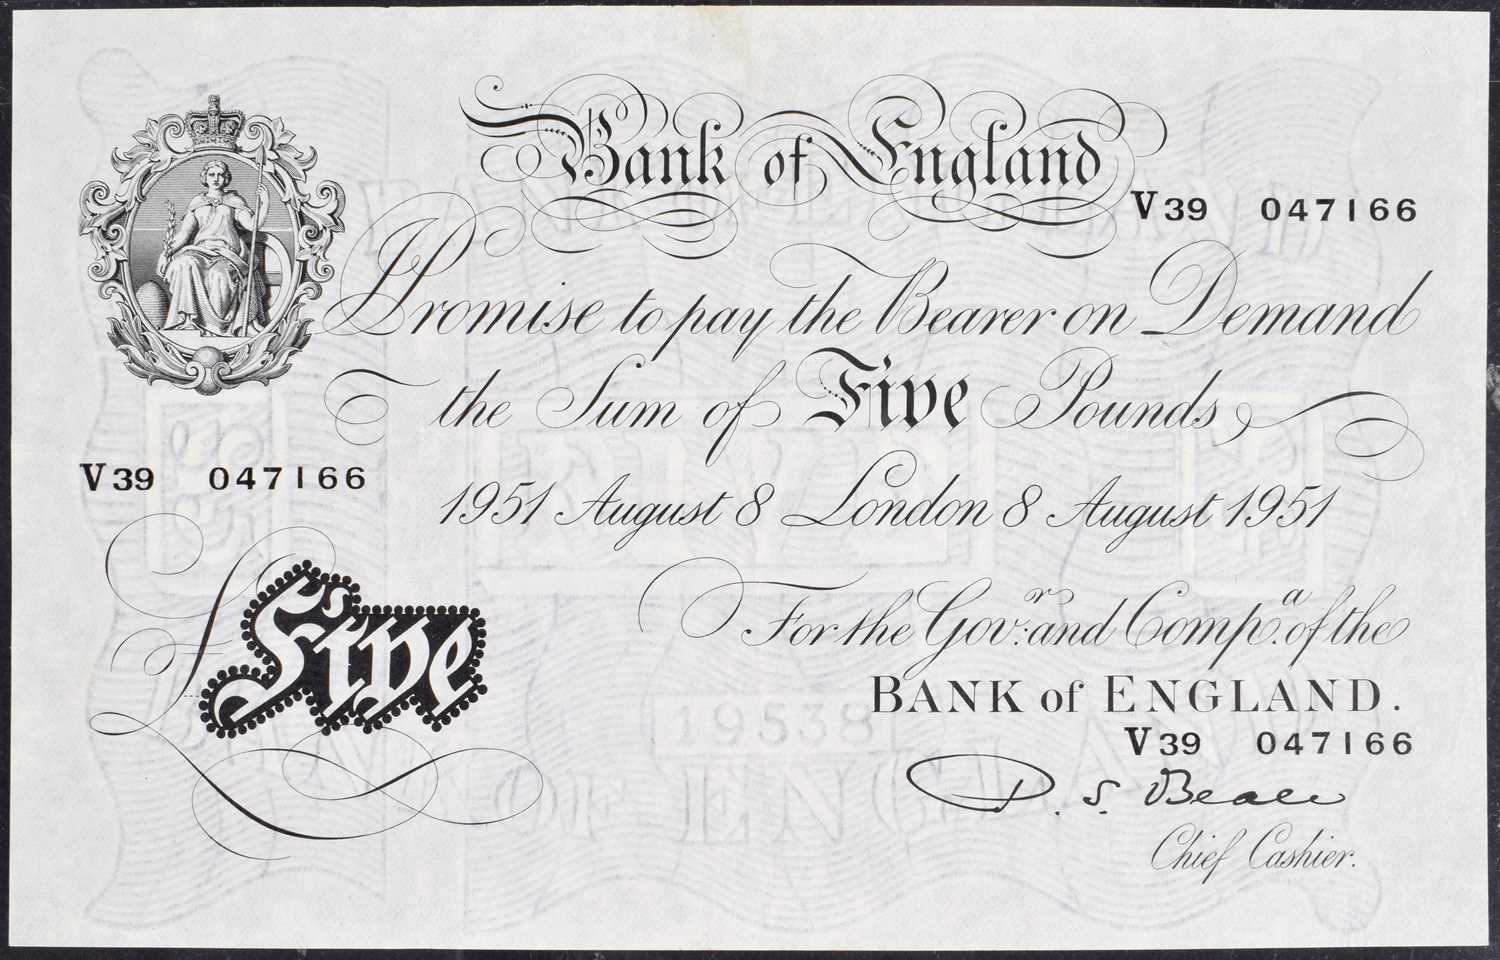 Bank of England
V39 047166
I Promise to pay the Bearer on Demand
the Sum of Five Pounds
V39 047166
1951 August 8 London 8 August 1951
£Five
For the Gov.r and Comp.a of the
BANK of ENGLAND.
19538
V39 047166
P. S. Beale
Chief Cashier.
OF ENGLAND